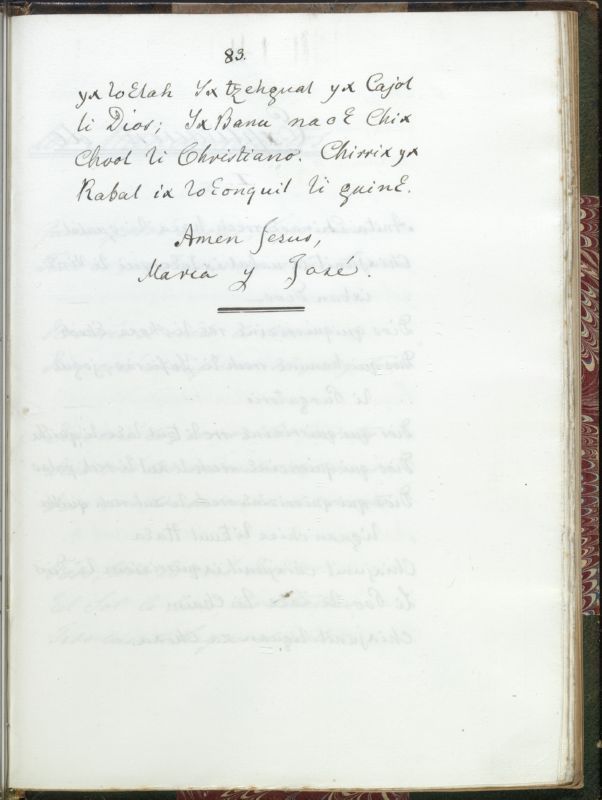 83.
yx loElah Yx tzehgual yx Cajol
li Dios; Yx Banu naoE Chix
Chool li Christiano. Chirrix yx
Rabal ix loEonquil li quinE.
Amen Jesus,
Maria y José.